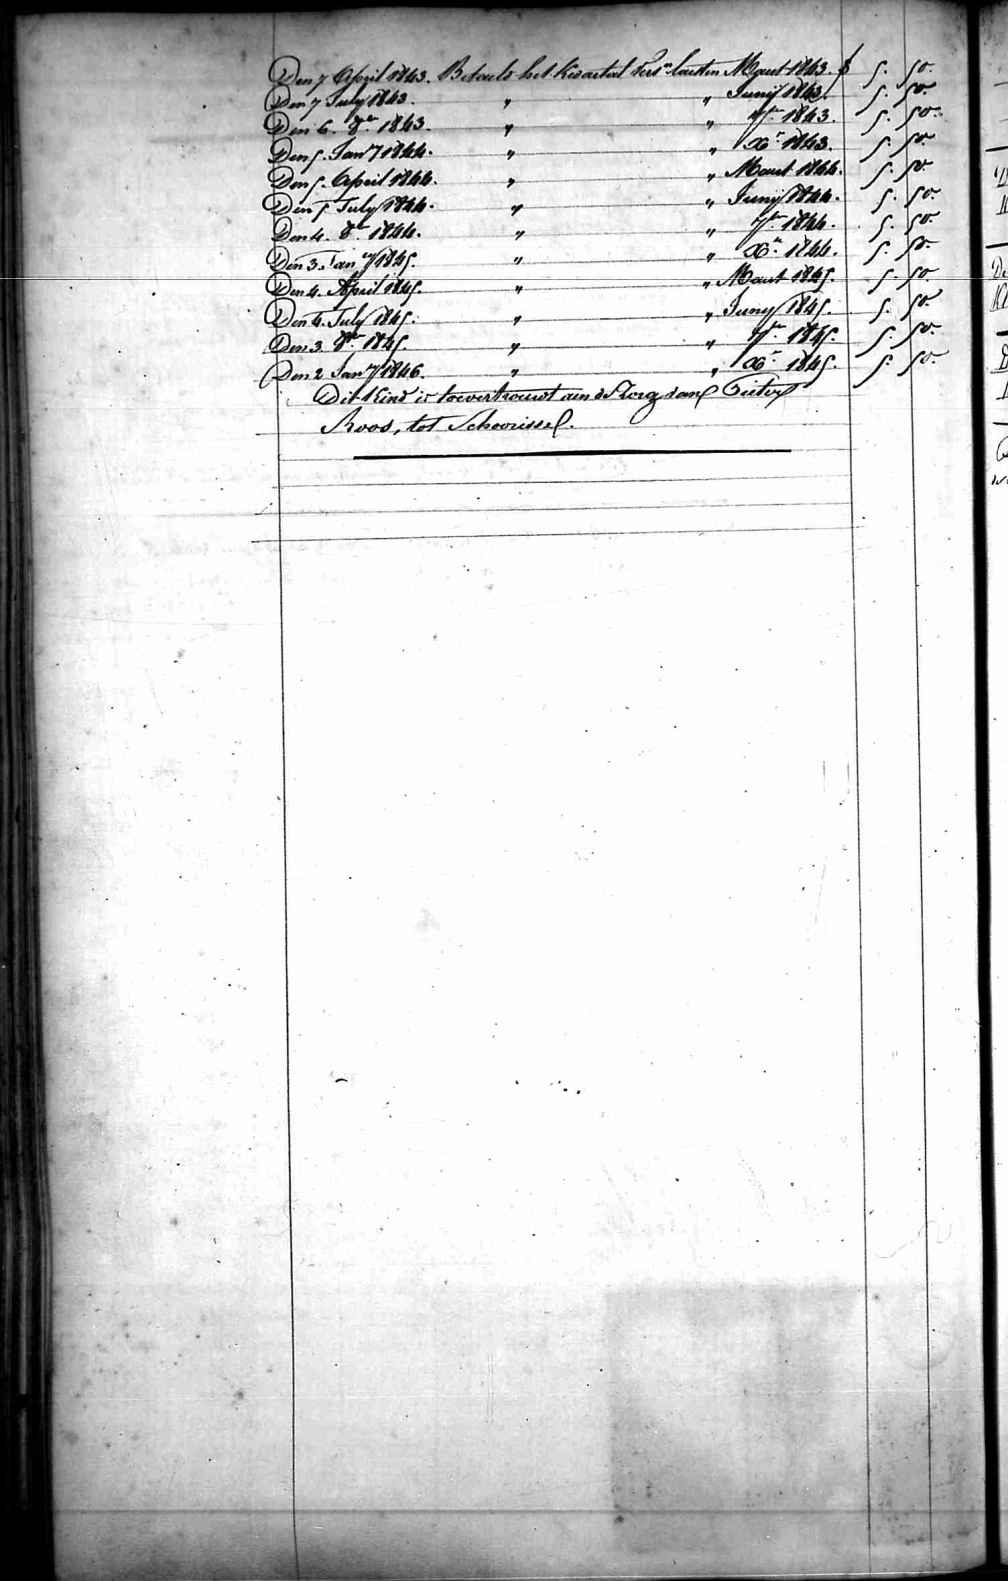 Den 7 April 1843. Betaald het Kwartaal vers. laatsten Maart 1843. f 5. 50.
Den 7 July 1843. " " Junij 1843. 5. 50.
Den 6. 8br 1843. " " 7br 1843. 5. 50.
Den 5. Jany 1844. " " Xr 1843. 5. 50.
Den 5. April 1844. " " Maart 1844. 5. 50.
Den 5 July 1844. " " Junij 1844. 5. 50.
Den 4. 8br 1844. " " 7br 1844. 5. 50.
Den 3. Jany 1845. " " Xr 1844. 5. 50.
Den 4. April 1845. " " Maart 1845. 5. 50.
Den 4. July 1845. " " Juny 1845. 5. 50.
Den 3. 8br 1845. " " 7br 1845. 5. 50.
Den 2 Jany 1846. " " Xr 1845. 5. 50.
Dit Kind is toevertrouwt aan de Zorg van Pieter
Roos, tot Schoorissel.